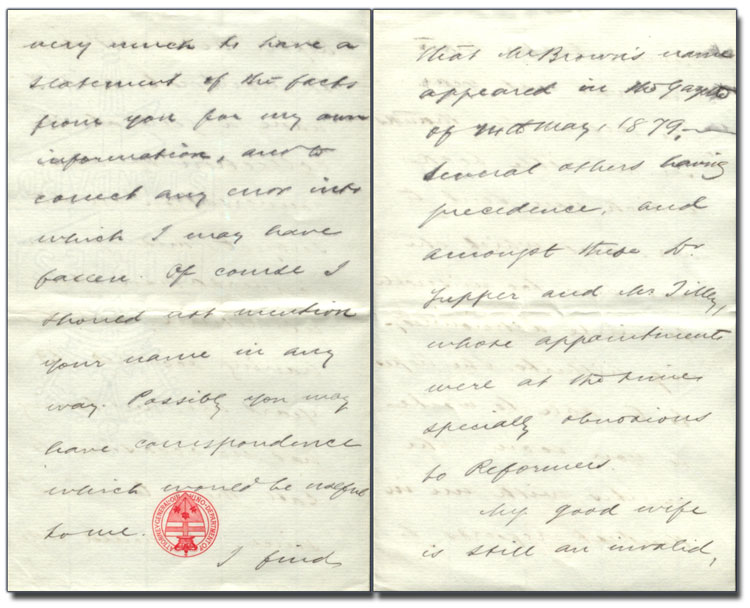 very much to have a
statement of the facts
from you for my own
information, and to
correct any error into
which I may have
fallen. Of course I
should not mention
your name in any
way. Possibly you may
have correspondence
which would be useful
to me.
I find
that Mr Brown's name
appeared in the Gazette
of May, 1879,—
several others having
precedence, and
amongst these Dr.
Tupper and Mr Tilley,
whose appointments
were at the time
specially obnoxious
to Reformers.
My good wife
is still an invalid,
ATTORNEY-GENERAL DEPARTMENT OF